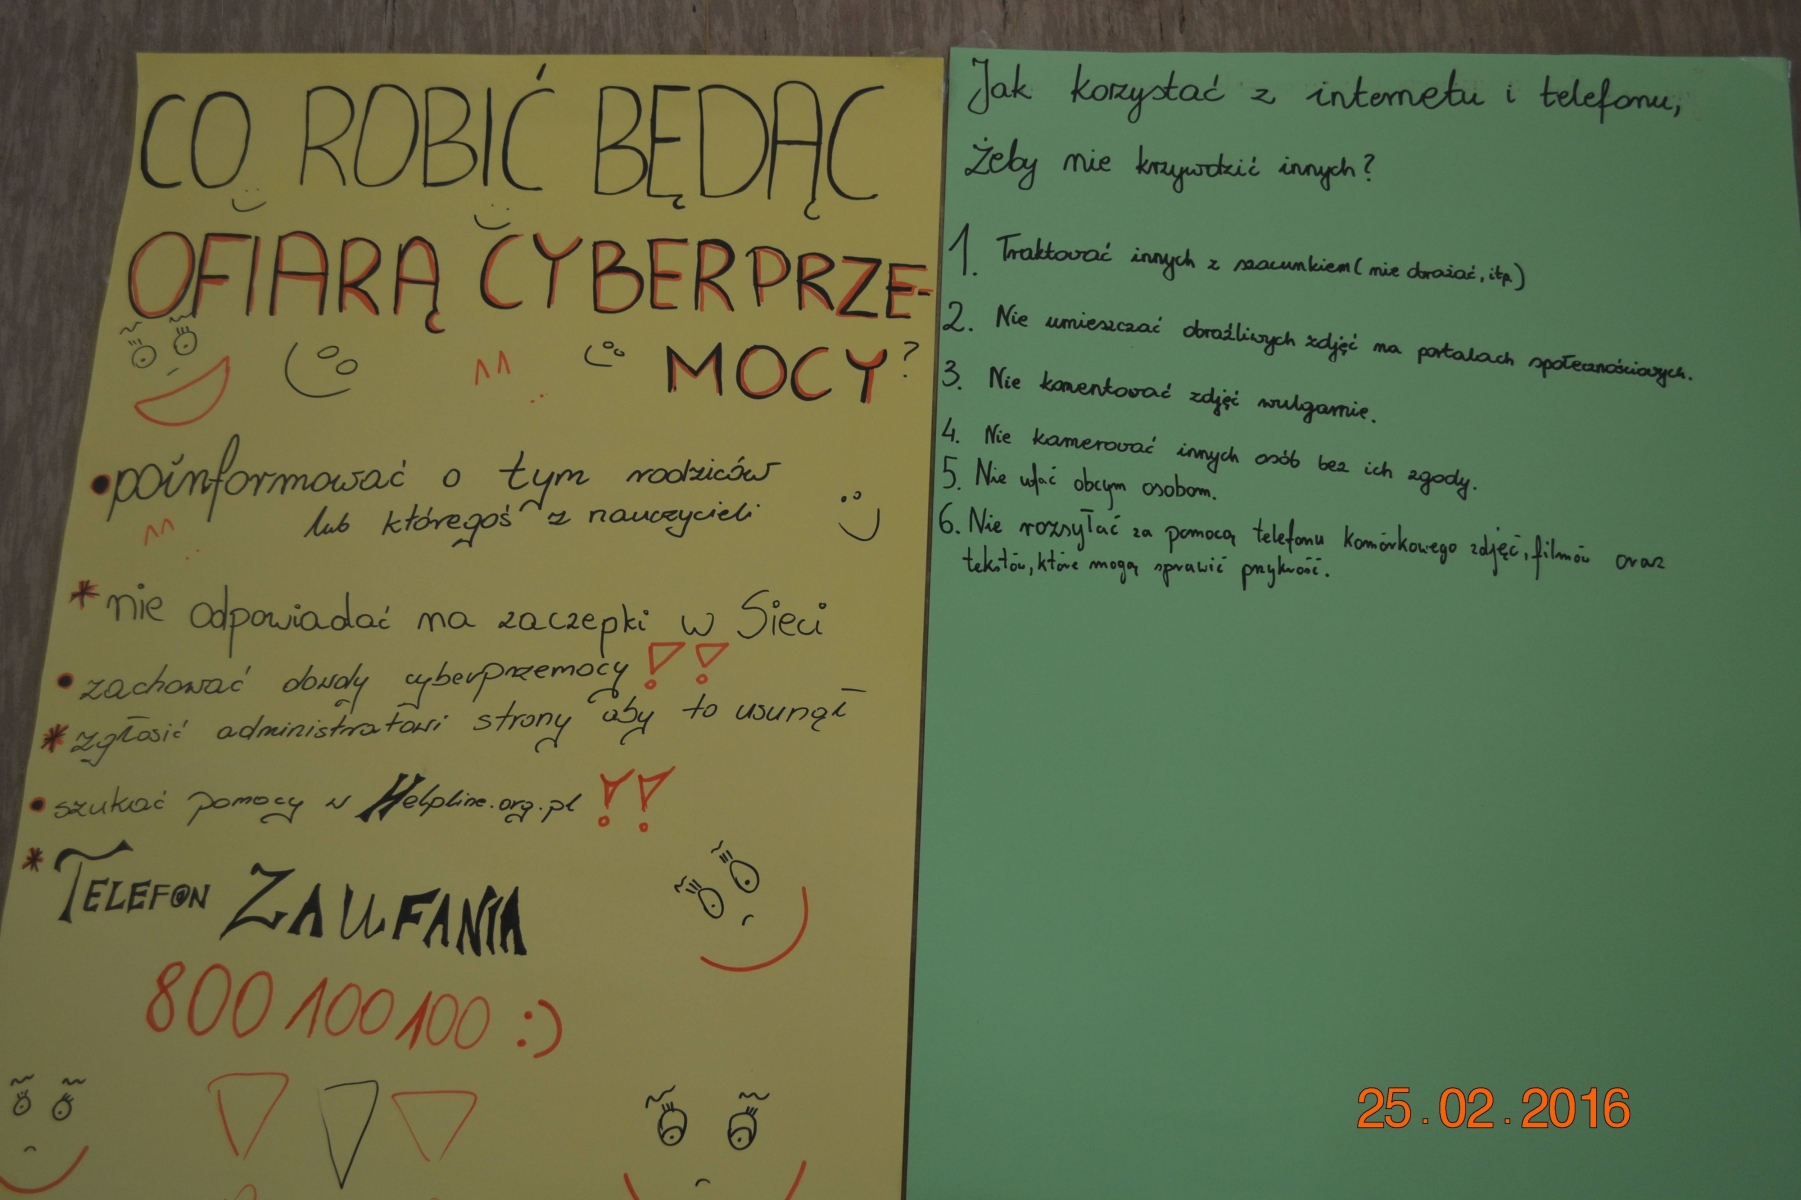 CO ROBIĆ BĘDĄC
OFIARĄ CYBERPRZE-
MOCY?
•poinformować o tym rodziców
lub któregoś z nauczycieli
*nie odpowiadać na zaczepki w Sieci
•zachować dowody cyberprzemocy!!
*zgłosić administratowi strony aby to usunął
•szukać pomocy w Helpline.org.pl !!
*TELEF@N ZAUFANIA
800 100 100 :)
Jak korzystać z internetu i telefonu,
żeby nie krzywdzić innych?
1. Traktować innych z szacunkiem (nie obrażać, itp)
2. Nie umieszczać obraźliwych zdjęć na portalach społecznościowych.
3. Nie komentować zdjęć wulgarnie.
4. Nie kamerować innych osób bez ich zgody.
5. Nie ufać obcym osobom.
6. Nie rozsyłać za pomocą telefonu komórkowego zdjęć, filmów oraz
tekstów, które mogą sprawić przykrość.
25.02.2016